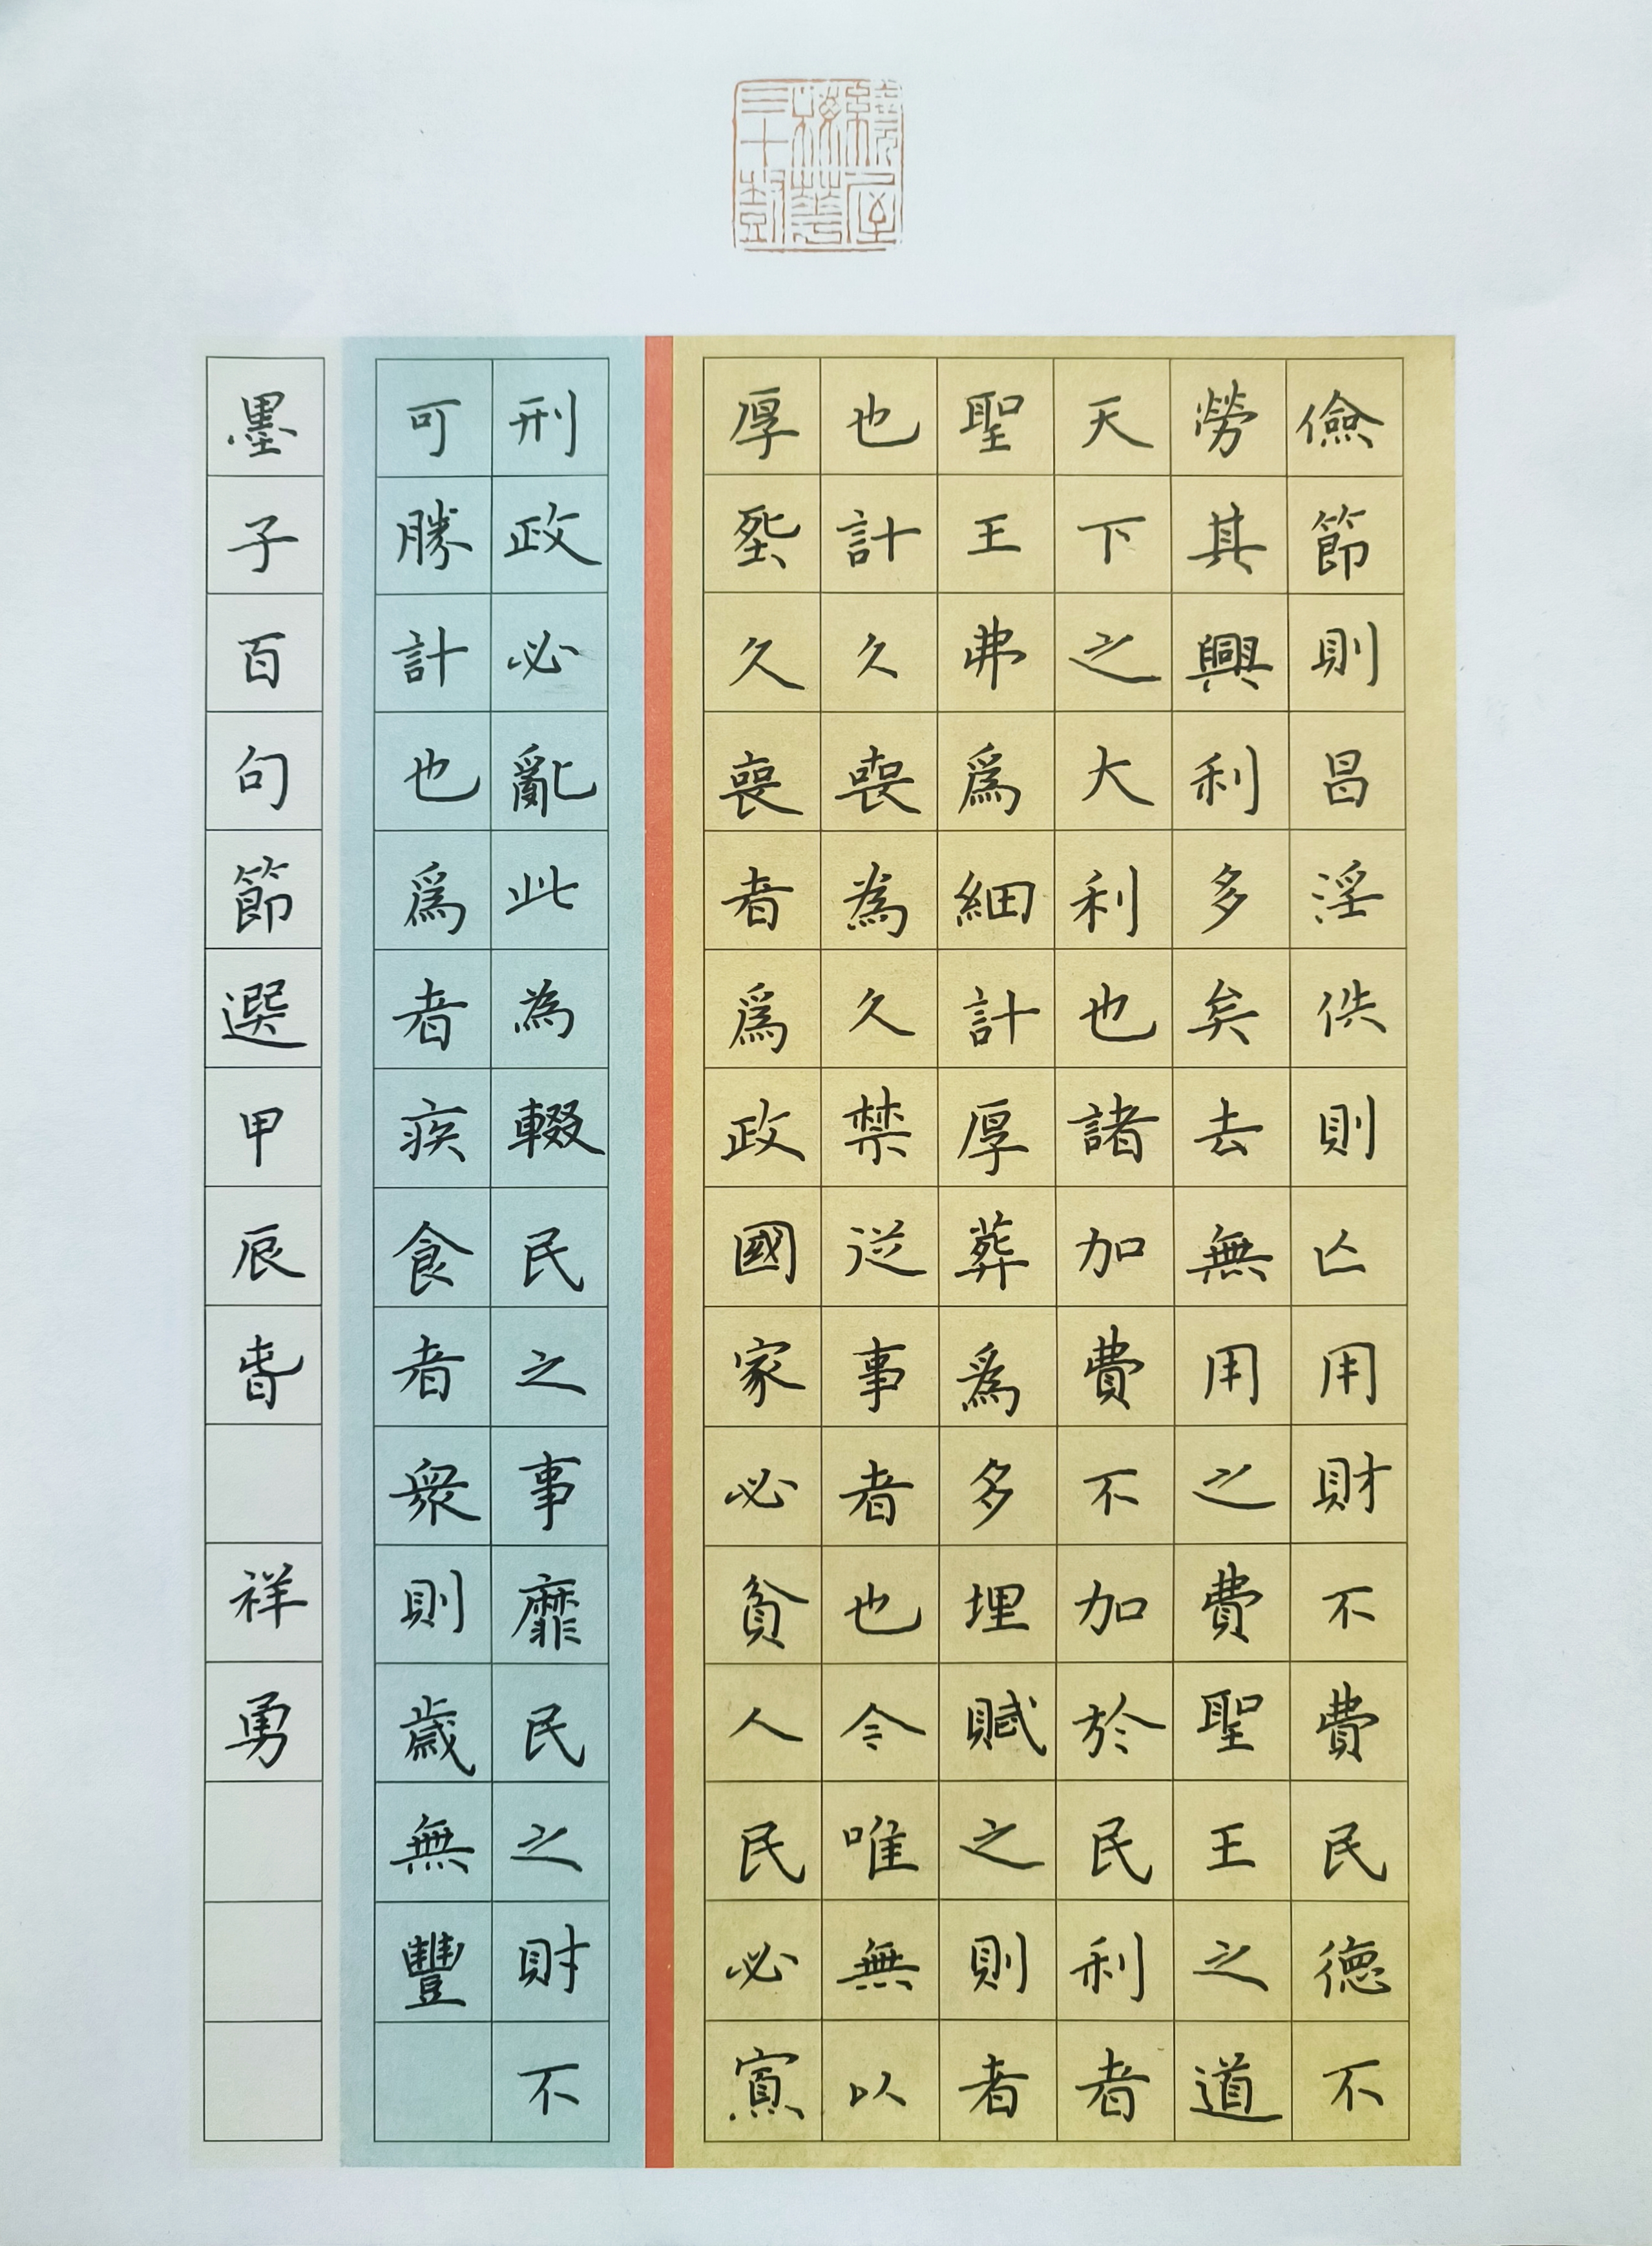 繞屋梅華三十樹
儉節則昌淫佚則亡用財不費民德不
勞其興利多矣去無用之費聖王之道
天下之大利也諸加費不加於民利者
聖王弗爲細計厚葬爲多埋賦之則者
也計久喪為久禁從事者也今唯無以
厚葬久喪者爲政國家必貧人民必寡
刑政必亂此為輟民之事靡民之財不
可勝計也爲者疾食者衆則歲無豐
墨子百句節選甲辰旾 祥勇